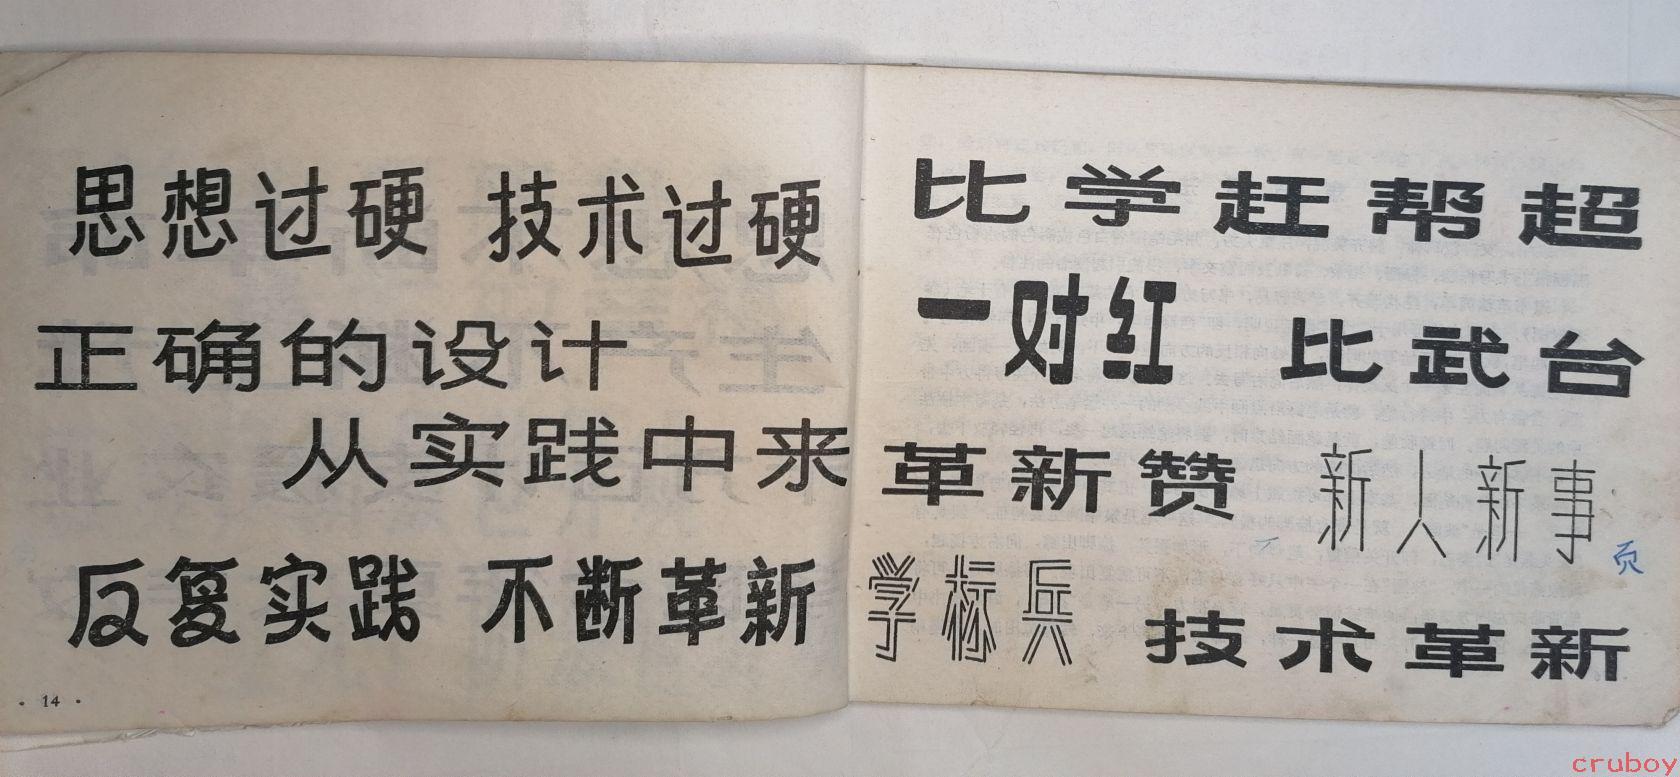 思想过硬 技术过硬
正确的设计
从实践中来
反复实践 不断革新
· 14 ·
比学赶帮超
一对红 比武台
革新赞 新人新事
页
学标兵 技术革新
cruboy